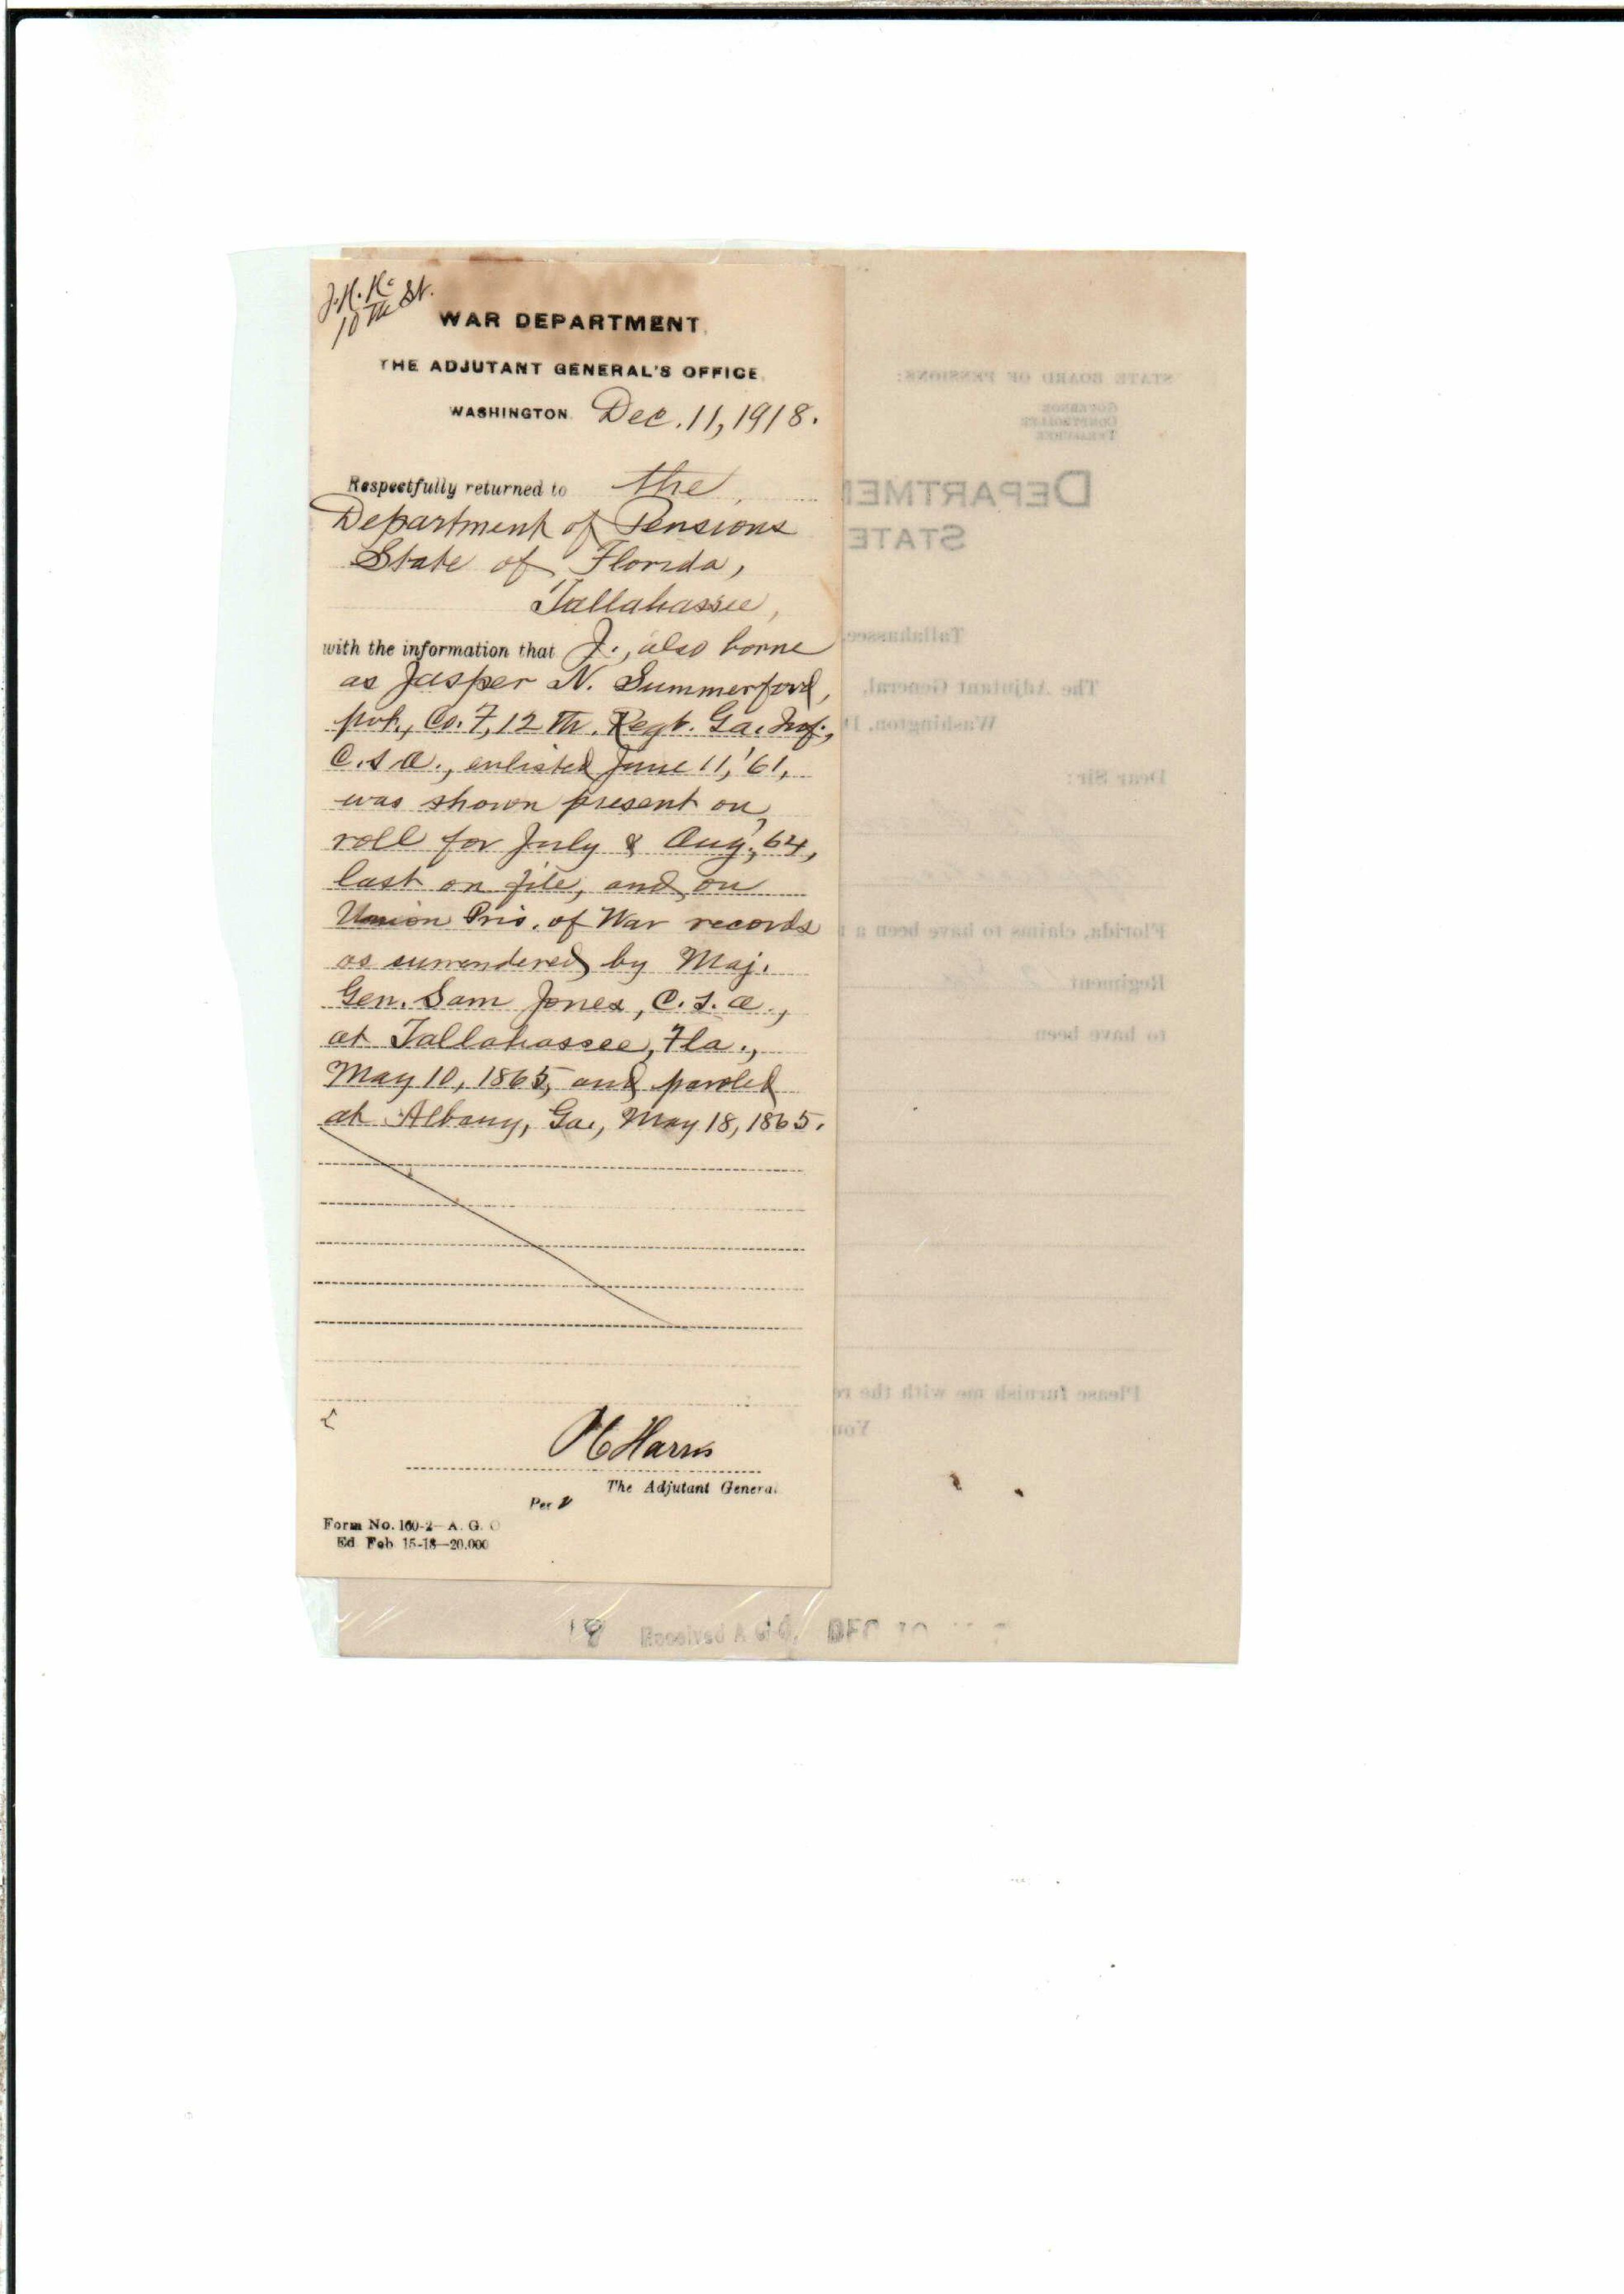 J.H.K.
10th St.
WAR DEPARTMENT,
THE ADJUTANT GENERAL'S OFFICE,
WASHINGTON. Dec. 11, 1918.
Respectfully returned to the
Department of Pensions
State of Florida,
Tallahassee,
with the information that J., also borne
as Jasper N. Summerford,
pvt., Co. F, 12 th. Regt. Ga. Inf.,
C.S.A., enlisted June 11, '61,
was shown present on
roll for July & Aug., '64,
last on file, and on
Union Pris. of War records
as surrendered by Maj.
Gen. Sam Jones, C.S.A.,
at Tallahassee, Fla.,
May 10, 1865, and paroled
at Albany, Ga., May 18, 1865.
Harris
The Adjutant General.
Per
Form No. 160-2—A. G. O
Ed. Feb. 15-18—20,000
STATE BOARD OF PENSIONS:
GOVERNOR
COMPTROLLER
TREASURER
DEPARTMEN
STATE
Tallahassee,
The Adjutant General,
Washington, D
Dear Sir:
Florida, claims to have been a
Regiment
to have been
Please furnish me with the re
You
Received A
DEC